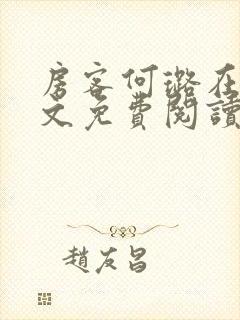 房客何璐在
文免費閱讀
趙友昌